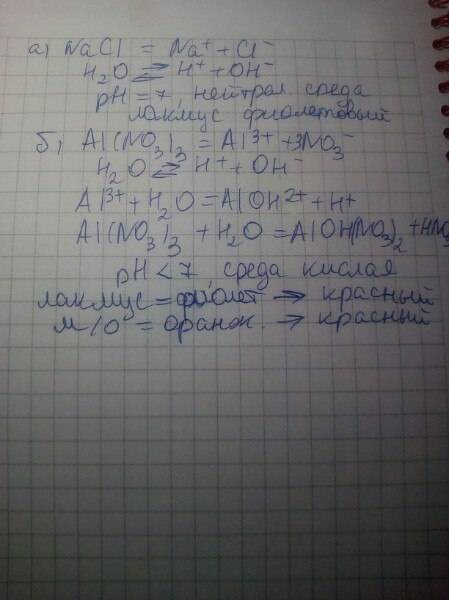 а) NaCl = Na⁺ + Cl⁻
H₂O ⇄ H⁺ + OH⁻
pH = 7, нейтрал. среда
лакмус фиолетовый
б) Al(NO₃)₃ = Al³⁺ + 3NO₃⁻
H₂O ⇄ H⁺ + OH⁻
Al³⁺ + H₂O = AlOH²⁺ + H⁺
Al(NO₃)₃ + H₂O = AlOH(NO₃)₂ + HNO₃
pH < 7, среда кислая
лакмус = фиолет → красный
м/о = оранж. → красный